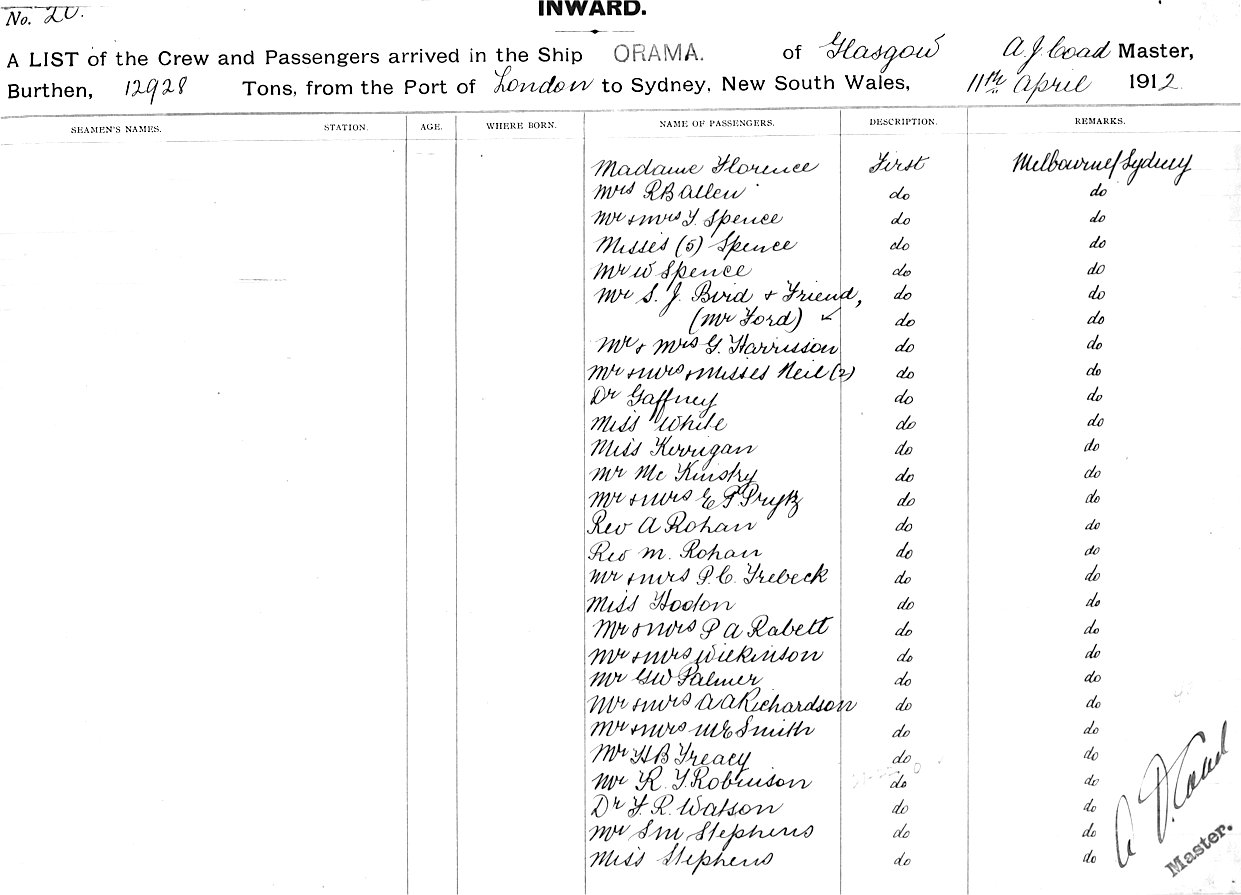 No. 20.
INWARD.
A LIST of the Crew and Passengers arrived in the Ship ORAMA. of Glasgow A J Coad Master,
Burthen, 12928 Tons, from the Port of London to Sydney, New South Wales, 11th April 1912
SEAMEN'S NAMES. STATION. AGE. WHERE BORN. NAME OF PASSENGERS. DESCRIPTION. REMARKS.
Madame Florence First Melbourne/Sydney
Mrs R B Allen do do
Mr & Mrs T. Spence do do
Misses (5) Spence do do
Mr W Spence do do
Mr S. J. Bird & Friend, do do
(Mr Ford) do do
Mr & Mrs G. Harrisson do do
Mr & Mrs & Misses Neil (2) do do
Dr Gaffney do do
Miss White do do
Miss Kerrigan do do
Mr Mc Kinstry do do
Mr & Mrs E P Prytz do do
Rev A Rohan do do
Rev M. Rohan do do
Mr & Mrs P. C. Trebeck do do
Miss do do
Mr & Mrs P A Rabett do do
Mr & Mrs Wilkinson do do
Mr G W Palmer do do
Mr & Mrs A A Richardson do do
Mr & Mrs M E Smith do do
Mr H B Treacy do do
Mr R. T. Robinson do do
Dr F. R. Watson do do
Mr S M Stephens do do
Miss Stephens do do
A J Coad
Master.